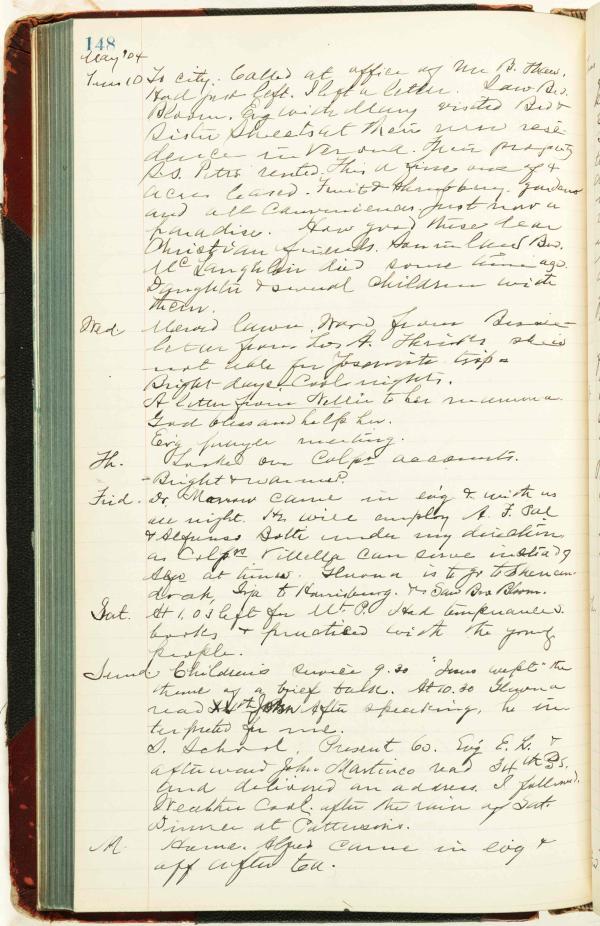 148
May '04
Tues 10 To city. Called at office of Mr B. Thaw.
Had just left. I left a letter. Saw Bro.
Bloom. Evg with Mary visited Bro &
Sister Sheets at their new resi-
dence in Verona. Their property
rented. This a fine one of 4
acres leased. Fruit & gardens
and all conveniences just now a
paradise. How good these dear
Christian friends. Son in law Bro.
McLaughlin died some time ago.
Daughter & several children with
them.
Wed. Mowed lawn. Word from Bessie
letter from Los A. she is
not able for Yosemite trip
Bright days Cool nights.
A letter from Nellie to her mamma.
God bless and help her.
Evg prayer meeting.
Th. Looked over Colprs accounts.
Bright & warmer.
Frid. Dr. Morrow came in evg & with us
all night. He will employ A. F.
& Alfonso under my direction
as Colprs Villella can serve instead of
at times. is to go to
trip to Harrisburg. Saw Bro Bloom.
Sat. At 1.03 left for Mt P. Had temperance
books & practiced with the young
people.
Sund Children's service 9.30 "Jesus wept" the
theme of a brief talk. At 10.30
read John After speaking, he in-
terpreted for me.
S. School, Present 60. Evg E. L. &
afterward John Martinco read 34th Ps.
and delivered an address. I followed.
Weather Cool after the rain of Sat.
Dinner at Pattersons.
M. Home. Alfred came in evg &
off after tea.